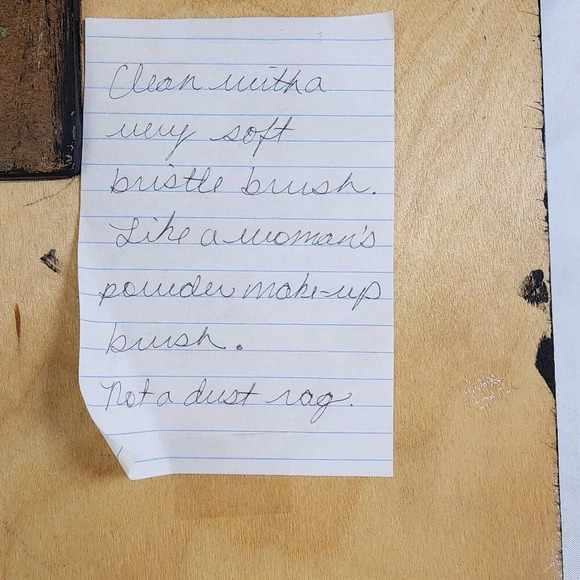 Clean with a
very soft
bristle brush.
Like a woman's
powder make-up
brush.
Not a dust rag.